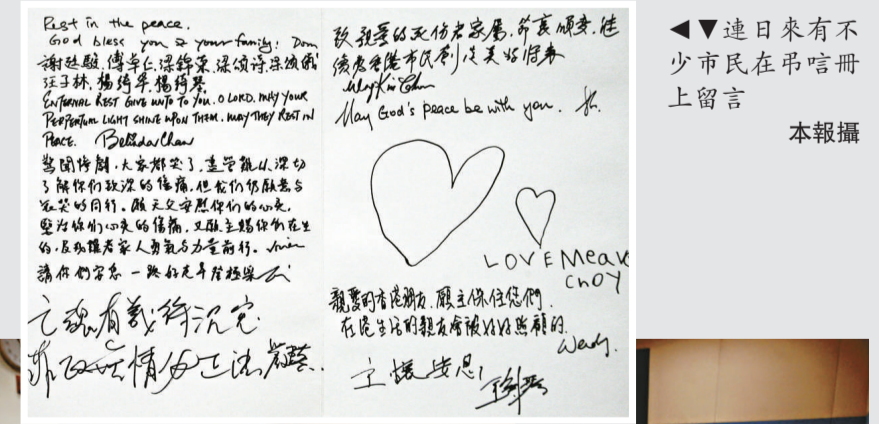 Rest in the peace.
God bless you & your family! Dom
謝廷駿,傅卓仁,梁錦榮,梁頌詩,梁頌儀
汪子林,楊綺華,楊綺琴
ETERNAL REST GIVE UNTO TO YOU, O LORD, MAY YOUR
PERPETUAL LIGHT SHINE UPON THEM. MAY THEY REST IN
PEACE. Belinda Chan
驚聞慘劇,大家都哭了,盡管難以深切
了解你們致深的傷痛,但我們仍願意与
哀哭的同行。願天父安慰你們的心灵,
醫治你們心灵的傷痛,又願主賜你們在生
的,及
者家人勇氣与力量前行。
請你們安息 一路好走早登極樂
亡魂有
無情
致親愛的死伤者家屬,節哀順变,继
续为香港市民创造美好将来
May God's peace be with you.
LOVE Meave
CHOY
親愛的香港朋友,願主保住您們,
在港生活的親友會被好好照顧的.
Wendy.
主懷安息
◀▼連日來有不
少市民在弔唁冊
上留言
本報攝